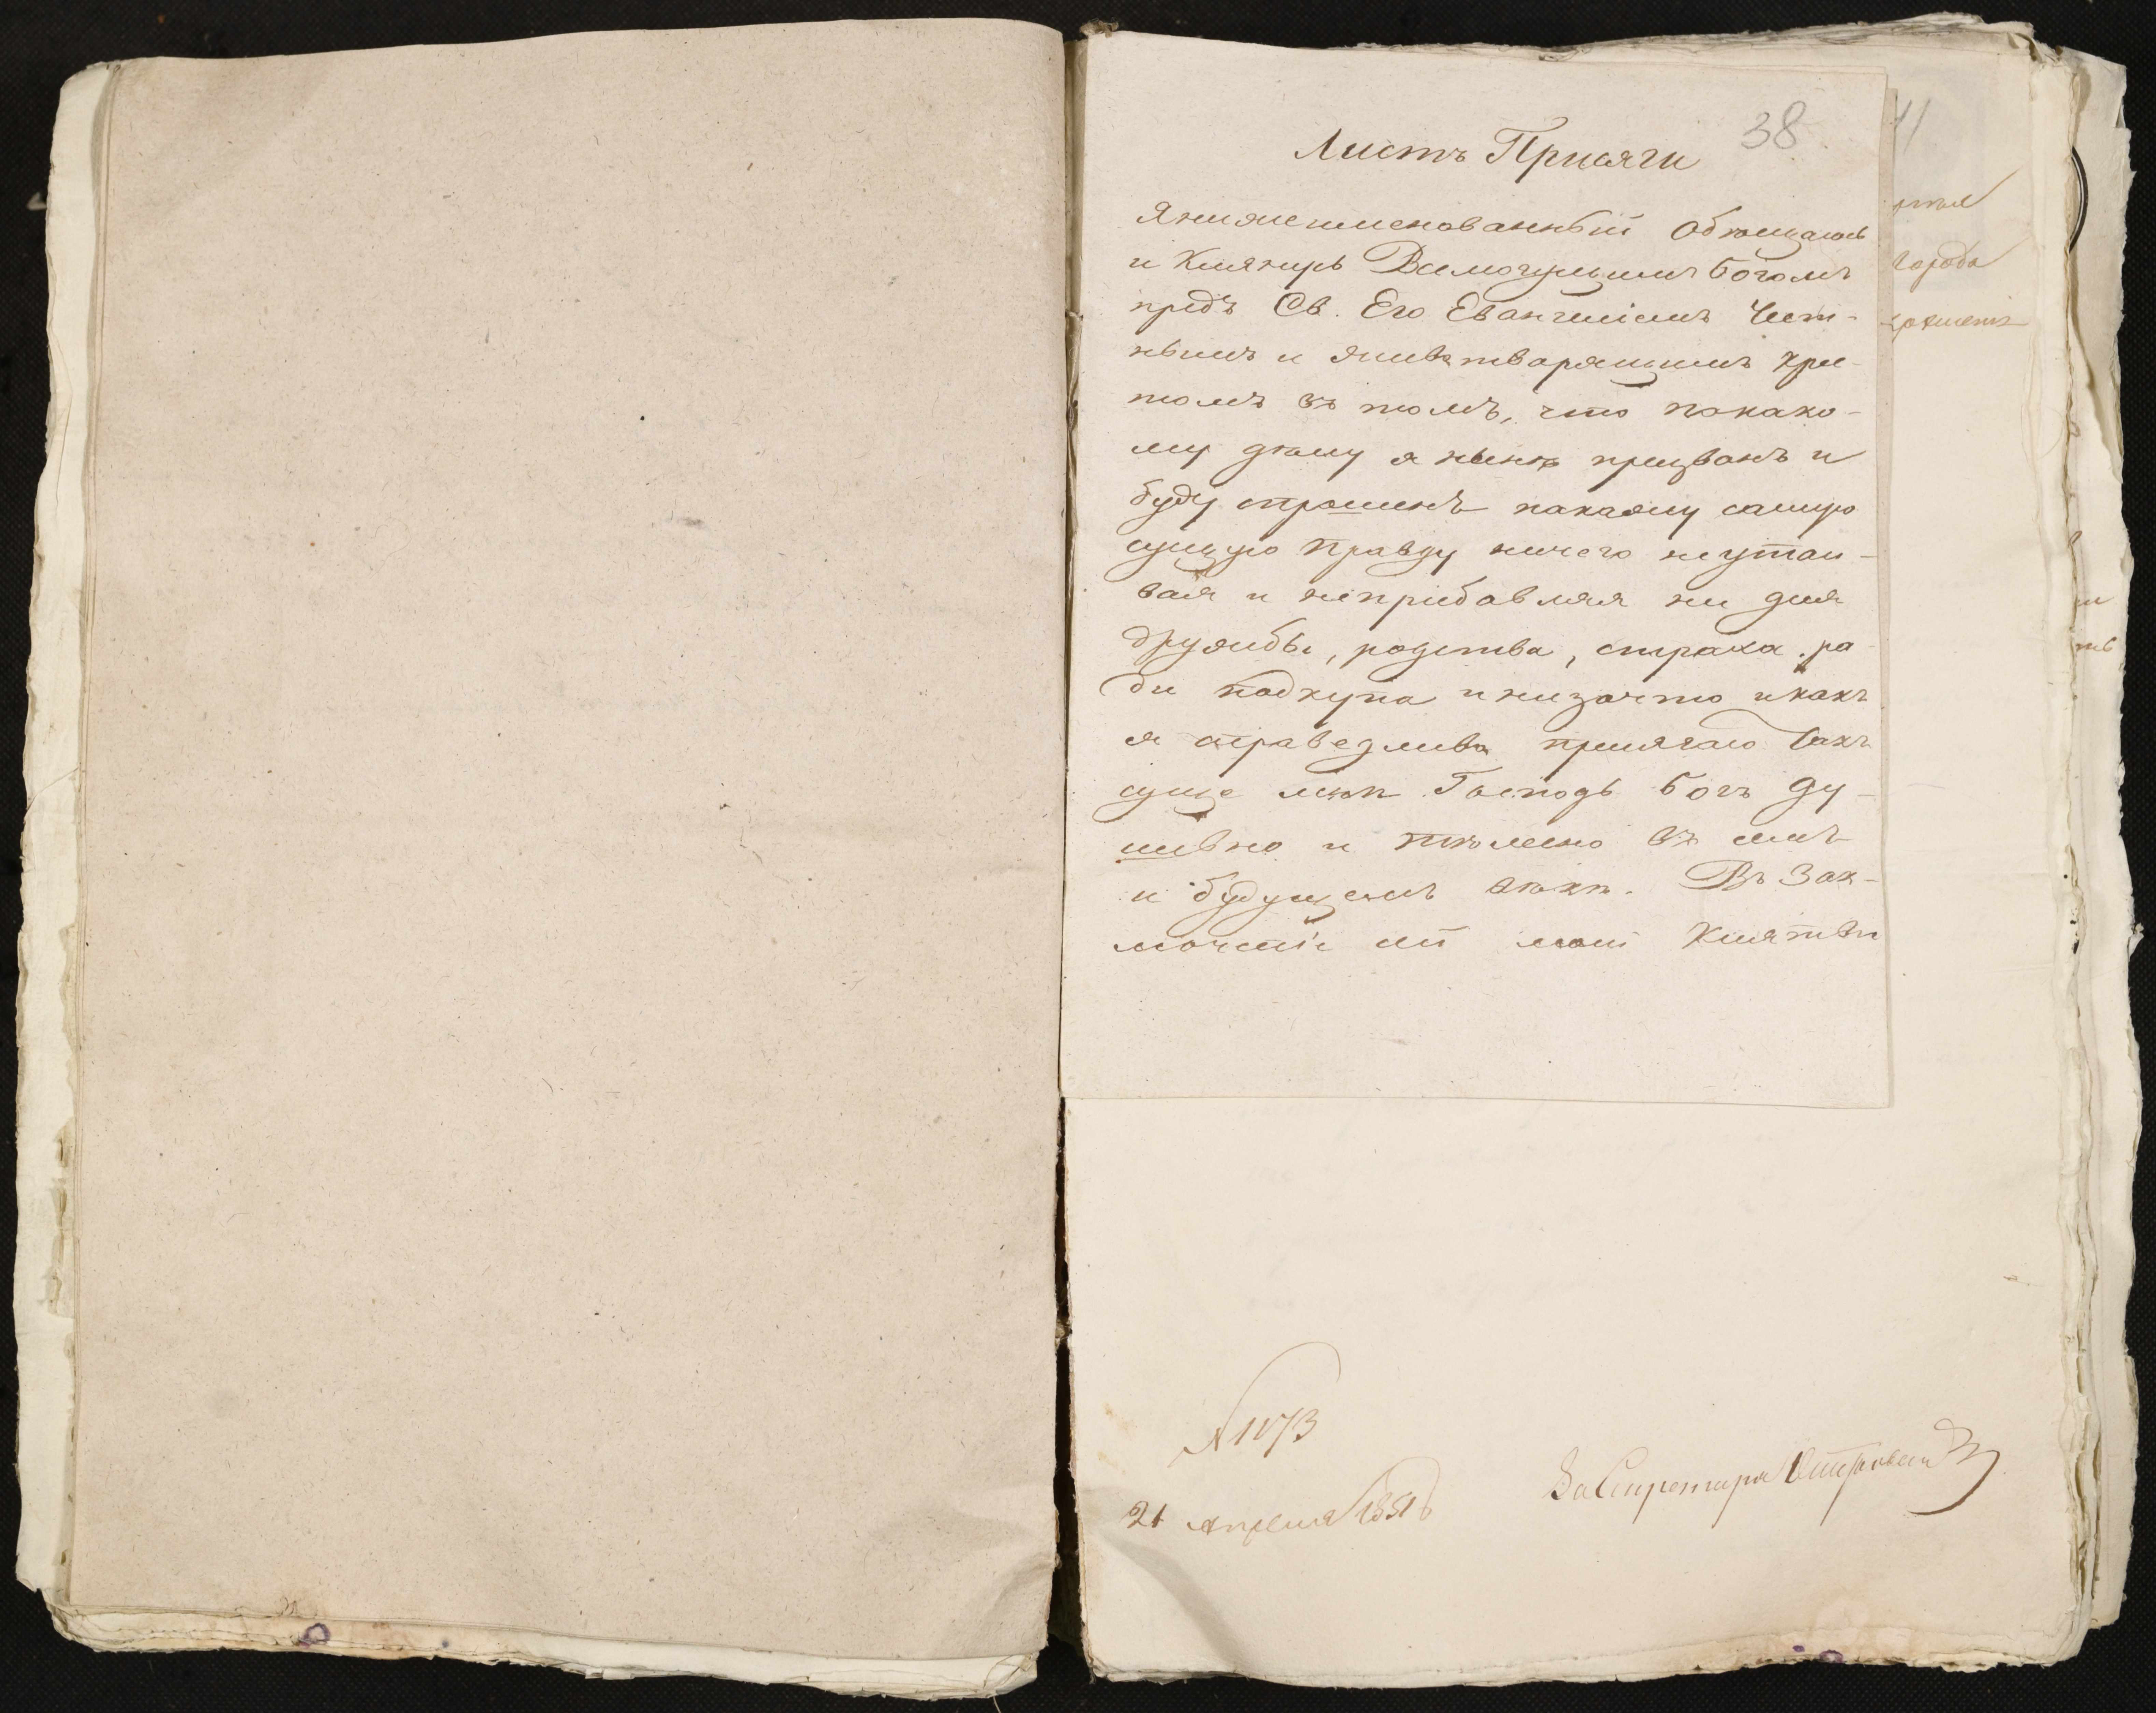 38
Листъ Присяги
Я нижеименованный Обѣщаюсь
и Клянусь Всемогущимъ Богомъ
предъ Св. Его Евангелиемъ Чест-
нымъ и Животворящимъ кре-
томъ въ томъ, что покако-
му дѣлу я нынѣ призванъ и
буду спрошенъ покажу самую
сущую правду ничего неутаи-
вая и неприбавляя ни для
дружбы, родства, страха. ра-
ди подкупа и низачто икакъ
я справедливо присягаю Такъ
суще мнѣ Господь Богъ Ду-
шевно и тѣлесно въ семъ
и будущемъ вѣкѣ. Въ Зак-
лючение сей моей Клятвы
41
города
№ 1073
21 Апреля 1851 г
За Секретаря